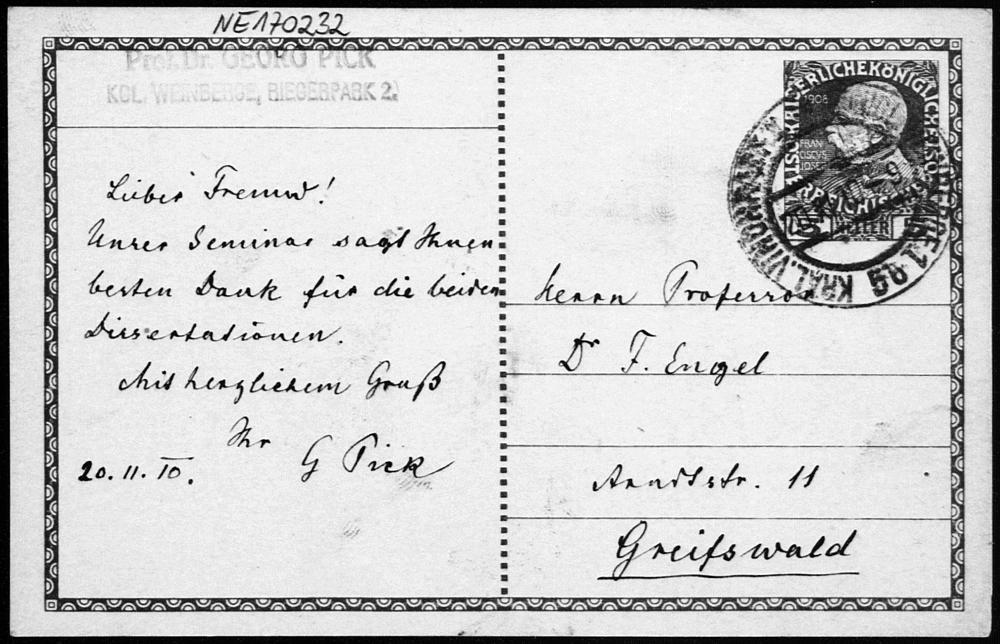 NE170232
Prof. Dr. GEORG PICK
KGL. WEINBERGE, RIEGERPARK 2.
Lieber Freund!
Unser Seminar sagt Ihnen
besten Dank für die beiden
Dissertationen.
Mit herzlichem Gruß
Ihr
G Pick
20.11.10.
KAISERLICHE KÖNIGLICHE
ÖSTERREICHISCHE
1908
FRAN
CISCVS
JOSEF
5 HELLER 5
KRÁL. VINOHRADY
WEINBERGE 1
Herrn Professor
Dr F. Engel
Arndtstr. 11
Greifswald